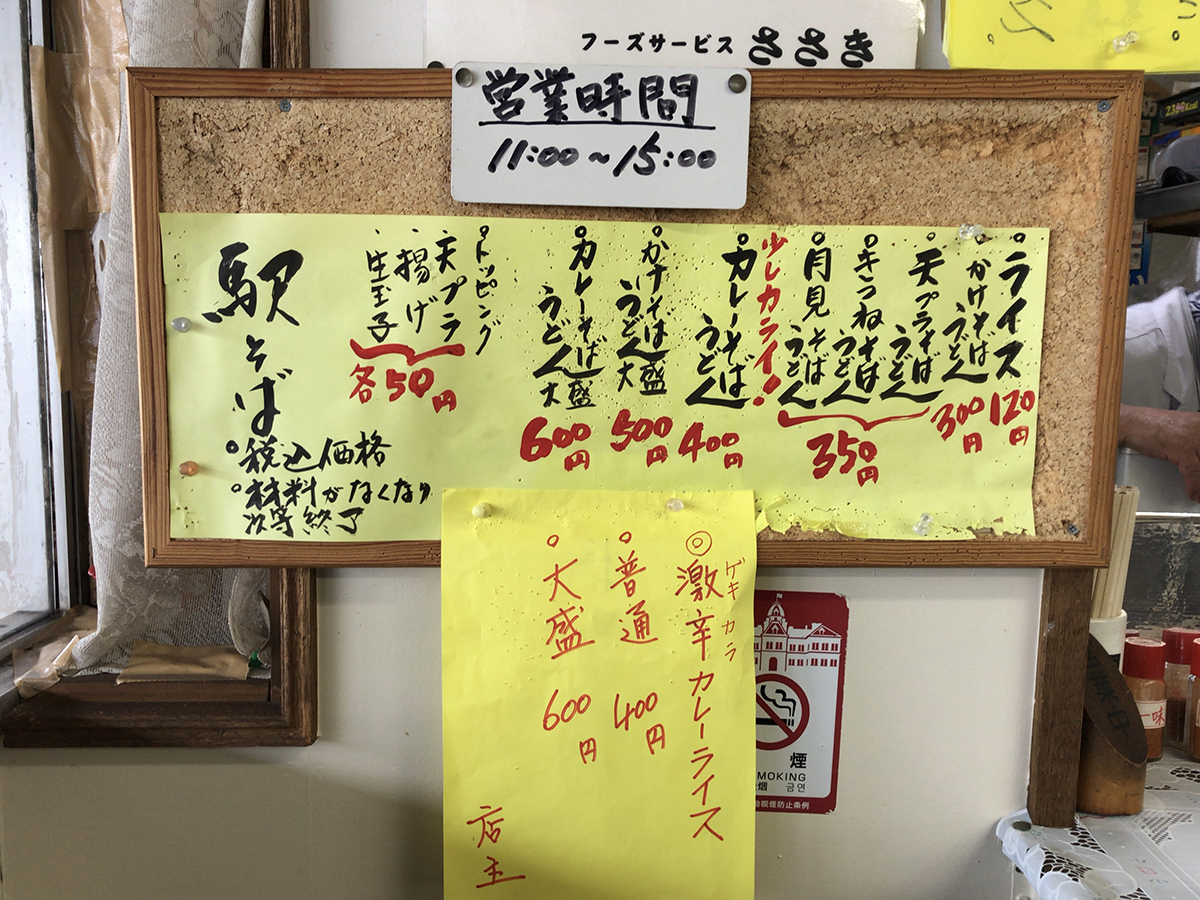 フーズサービス ささき
営業時間
11:00~15:00
。ライス 120円
。かけそば うどん 300円
。天プラそば うどん
。キつねそば うどん
。月見そば うどん
350円
少しカライ!
。カレーそば うどん 400円
。かけそば うどん 大盛 500円
。カレーそば うどん 大盛 600円
。トッピング
天プラ
揚げ
生玉子
各50円
駅そば
。税込価格
。材料がなくなり
次㐧終了
◎激辛カレーライス
ゲキ カラ
。普通 400円
。大盛 600円
店主
煙
MOKING
烟 금연
喫煙防止条例
一味